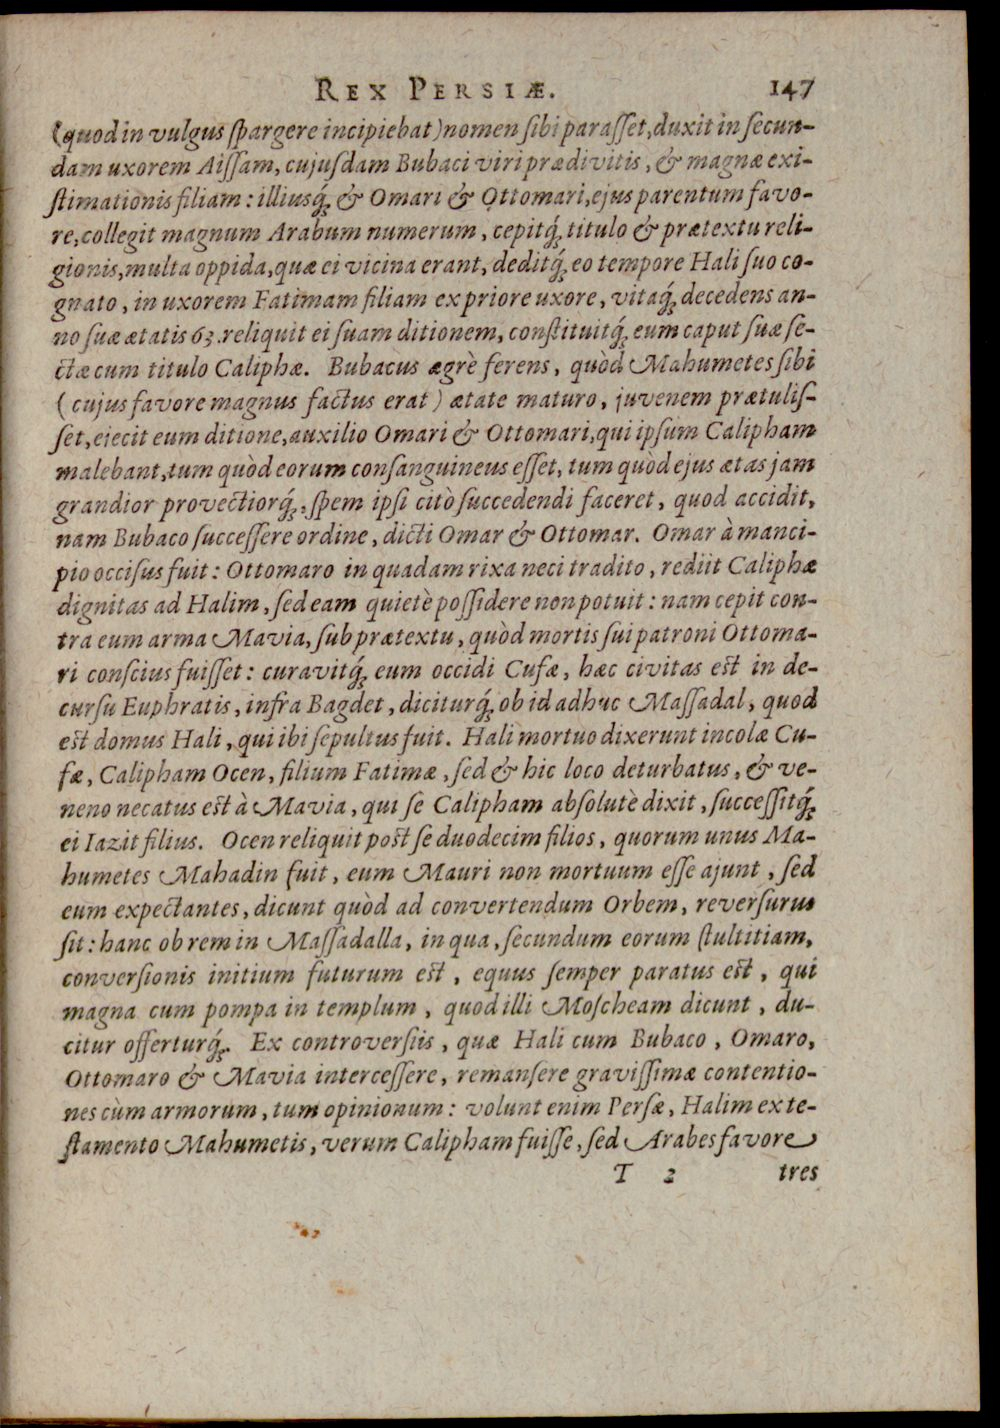 REX PERSIÆ. 147
(quod in vulgus ſpargere incipiebat) nomen ſibi paraſſet, duxit in ſecun-
dam uxorem Aiſſam, cujuſdam Bubaci viri prædivitis, & magnæ exi-
ſtimationis filiam: illiusq́; & Omari & Ottomari, ejus parentum favo-
re, collegit magnum Arabum numerum, cepitq́; titulo & prætextu reli-
gionis, multa oppida, quæ ei vicina erant, deditq́; eo tempore Hali ſuo co-
gnato, in uxorem Fatimam filiam ex priore uxore, vitaq́; decedens an-
no ſuæ ætatis 63. reliquit ei ſuam ditionem, conſtituitq́; eum caput ſuæ ſe-
ctæ cum titulo Caliphæ. Bubacus ægrè ferens, quòd Mahumetes ſibi
(cujus favore magnus factus erat) ætate maturo, juvenem prætuliſ-
ſet, ejecit eum ditione, auxilio Omari & Ottomari, qui ipſum Calipham
malebant, tum quòd eorum conſanguineus eſſet, tum quòd ejus ætas jam
grandior provectiorq́;, ſpem ipſi citò ſuccedendi faceret, quod accidit,
nam Bubaco ſucceſſere ordine, dicti Omar & Ottomar. Omar à manci-
pio occiſus fuit: Ottomaro in quadam rixa neci tradito, rediit Caliphæ
dignitas ad Halim, ſed eam quietè poſſidere non potuit: nam cepit con-
tra eum arma Mavia, ſub prætextu, quòd mortis ſui patroni Ottoma-
ri conſcius fuiſſet: curavitq́; eum occidi Cufæ, hæc civitas eſt in de-
curſu Euphratis, infra Bagdet, diciturq́; ob id adhuc Maſſadal, quod
eſt domus Hali, qui ibi ſepultus fuit. Hali mortuo dixerunt incolæ Cu-
fæ, Calipham Ocen, filium Fatimæ, ſed & hic loco deturbatus, & ve-
neno necatus eſt à Mavia, qui ſe Calipham abſolutè dixit, ſucceſſitq́;
ei Iazit filius. Ocen reliquit poſt ſe duodecim filios, quorum unus Ma-
humetes Mahadin fuit, eum Mauri non mortuum eſſe ajunt, ſed
eum expectantes, dicunt quòd ad convertendum Orbem, reverſurus
ſit: hanc ob rem in Maſſadalla, in qua, ſecundum eorum ſtultitiam,
converſionis initium futurum eſt, equus ſemper paratus eſt, qui
magna cum pompa in templum, quod illi Moſcheam dicunt, du-
citur offerturq́;. Ex controverſiis, quæ Hali cum Bubaco, Omaro,
Ottomaro & Mavia interceſſere, remanſere graviſſimæ contentio-
nes cùm armorum, tum opinionum: volunt enim Perſæ, Halim ex te-
ſtamento Mahumetis, verum Calipham fuiſſe, ſed Arabes favore
T 2 tres